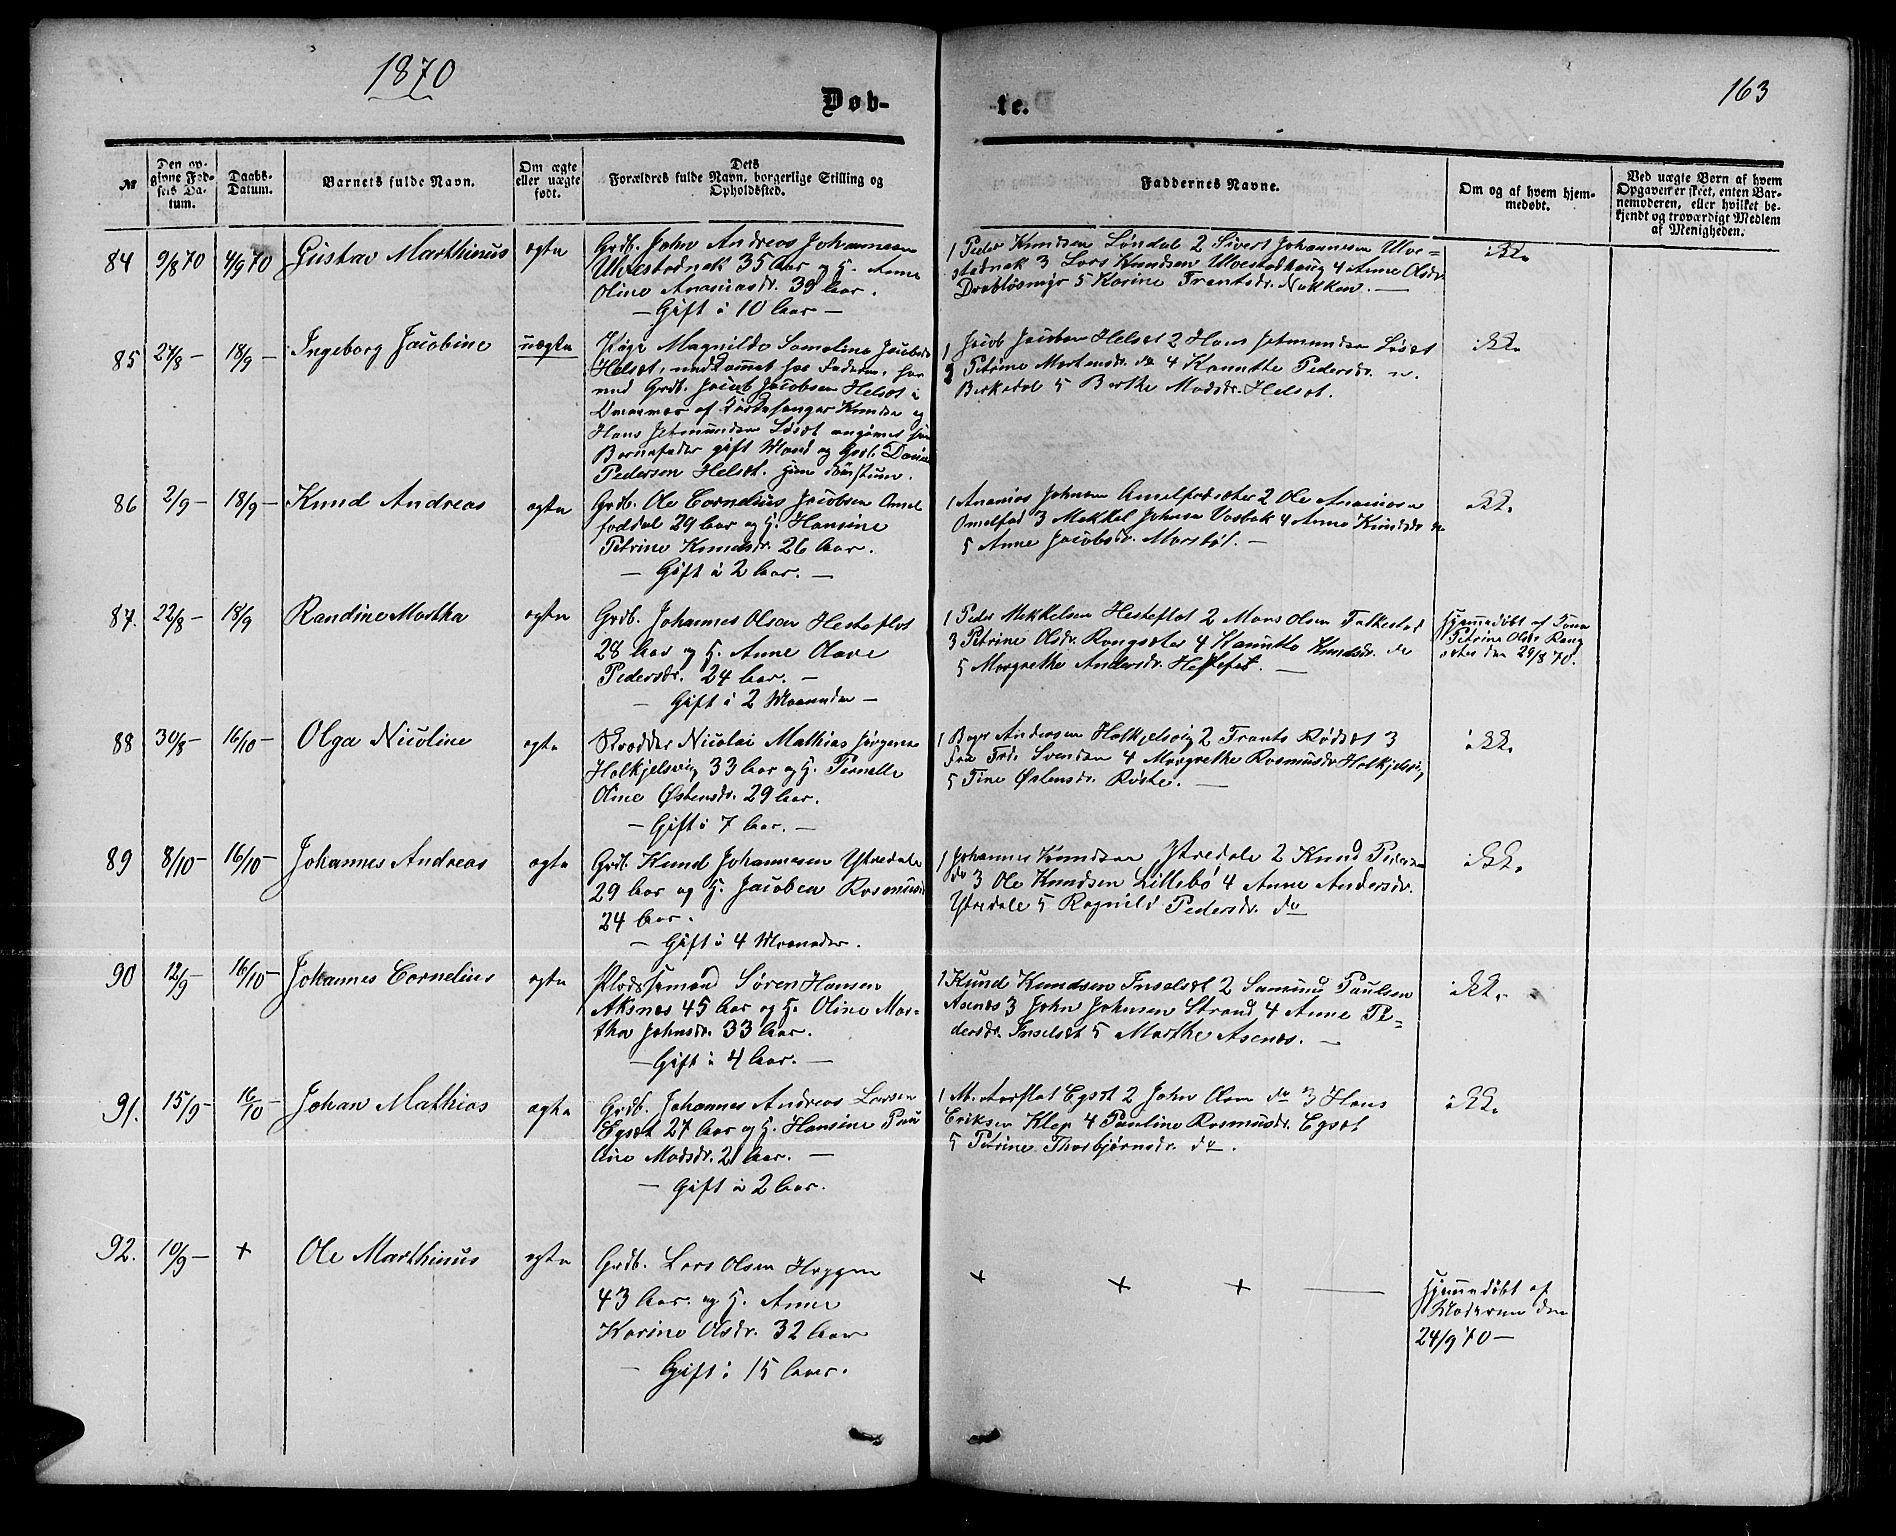 1870
Døb-
te.
163
№
Den op-
givne Fød-
sels Da-
tum.
Daabs-
Datum.
Barnets fulde Navn.
Om ægte
eller uægte
født.
Dets
Forældres fulde Navn, borgerlige Stilling og
Opholdssted.
Faddernes Navne.
Om og af hvem hjem-
medøbt.
Ved uægte Børn af hvem
Opgaven er skeet, enten Bar-
nemoderen, eller hvilket be-
kjendt og troværdigt Medlem
af Menigheden.
84 9/8 70 4/9 70 Gustav Marthinus ægte
Grdb. John Andreas Johannesen
Ulvestadnak 35 Aar og H. Anne
Oline Ananiasdr. 39 Aar.
— Gift i 10 Aar —
1 Peder Knudsen Løndal 2 Sivert Johannesen Ulve-
stadnak 3 Lars Knudsen Ulvestadhaug 4 Anne Olsdr.
Drabløsmyr 5 Karine Frantsdr. Nakken. —
ikke
85 27/8 — 18/9 — Ingeborg Jacobine uægte
Pige Magnilde Samoline Jacobsdr.
Helset,
med Grdb. Jacob Jacobsen Helset i
af Knudsen og
Hans Jetmundsen Løset angives som
Barnefader gift Mand og Grdb. Daniel
Pedersen Helset.
1 Jacob Jacobsen Helset 2 Hans Jetmundsen Løset
3 Petrine Martensdr. do 4 Kanutte Pedersdr.
Birkedal 5 Berthe Madsdr. Helset.
ikke
86 2/9 — 18/9 — Knud Andreas ægte
Grdb. Ole Cornelius Jacobsen Amel-
foddal 29 Aar og H. Hansine
Petrine Knudsdr. 26 Aar.
— Gift i 2 Aar. —
1 Ananias Johnsen Amelfodsæter 2 Ole Ananiasen
Amelfod 3 Mekkel Johnsen Vasbak 4 Anne Knudsdr. do
5 Anne Jacobsdr. Morsbøl. —
ikke
87. 22/8 — 18/9 Randine Martha ægte
Grdb. Johannes Olsen Hesteflot
28 Aar og H. Anne Olave
Pedersdr. 24 Aar. —
— Gift i 2 Maaneder —
1 Peder Mekkelsen Hesteflot 2 Mons Olsen Folkestad
3 Petrine Olsdr. Rangsæter 4 Kanutte Knudsdr. do
5 Margrethe Andersdr. Hesteflot. —
Hjemmedøbt af
Petrine Olsdr. Rang-
sæter den 29/8 70.
88 30/8 — 16/10 — Olga Nicoline ægte
Skrædder Nicolai Mathias Jørgensen
Holkjelsvig 33 Aar og H. Pernelle
Oline Østensdr. 29 Aar.
— Gift i 7 Aar. —
1 Andersen Holkjelsvig 2 Frants Rødset 3
Frd. Svendsen 4 Margrethe Rasmusdr. Holkjelsvig
5 Tine Østensdr. Røste. —
ikke
89 8/10 — 16/10 — Johannes Andreas ægte
Grdb. Knud Johannesen Ytredale
29 Aar og H. Jacobea Rasmusdr.
24 Aar.
— Gift i 4 Maaneder.
1 Johannes Knudsen Ytredale 2 Knud Pedersen
do 3 Ole Knudsen Lillebø 4 Anne Andersdr.
Ytredale 5 Ragnild Pedersdr. do
ikke
90 12/9 — 16/10 — Johannes Cornelius ægte
Pladssemand Søren Hansen
Aksnæs 45 Aar og H. Oline Mar-
tha Johnsdr. 33 Aar.
— Gift i 4 Aar. —
1 Knud Knudsen Inselset 2 Samund Paulsen
Asenæs 3 John Johnsen Strand 4 Anne Pe-
dersdr. Inselset 5 Marthe Asenæs. —
ikke
91. 15/9 — 16/10 Johan Mathias ægte
Grdb. Johannes Andreas Larsen
Egset 27 Aar og H. Hansine Pau-
line Madsdr. 21 Aar. —
— Gift i 2 Aar.
1 M. Aarflot Egset 2 John Olsen do 3 Hans
Eriksen Klep 4 Pauline Rasmusdr. Egset
5 Petrine Thorbjørnsdr. do.
ikke
92. 10/9 — + Ole Marthinus ægte
Grdb. Lars Olsen Heggen
43 Aar. og H. Anne
Karine Olsdr. 32 Aar
— Gift i 15 Aar.
+ + + —
Hjemmedøbt af
Moderen den
24/9 70 —